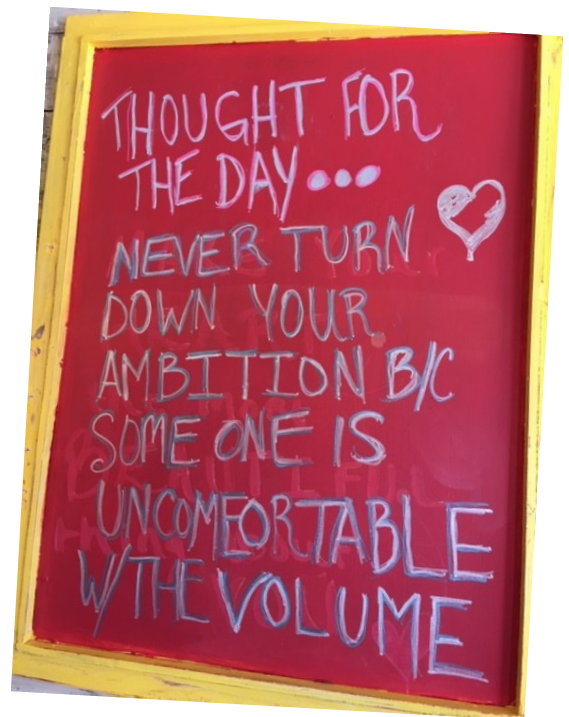 THOUGHT FOR
THE DAY...
NEVER TURN
DOWN YOUR
AMBITION B/C
SOME ONE IS
UNCOMFORTABLE
W/THE VOLUME